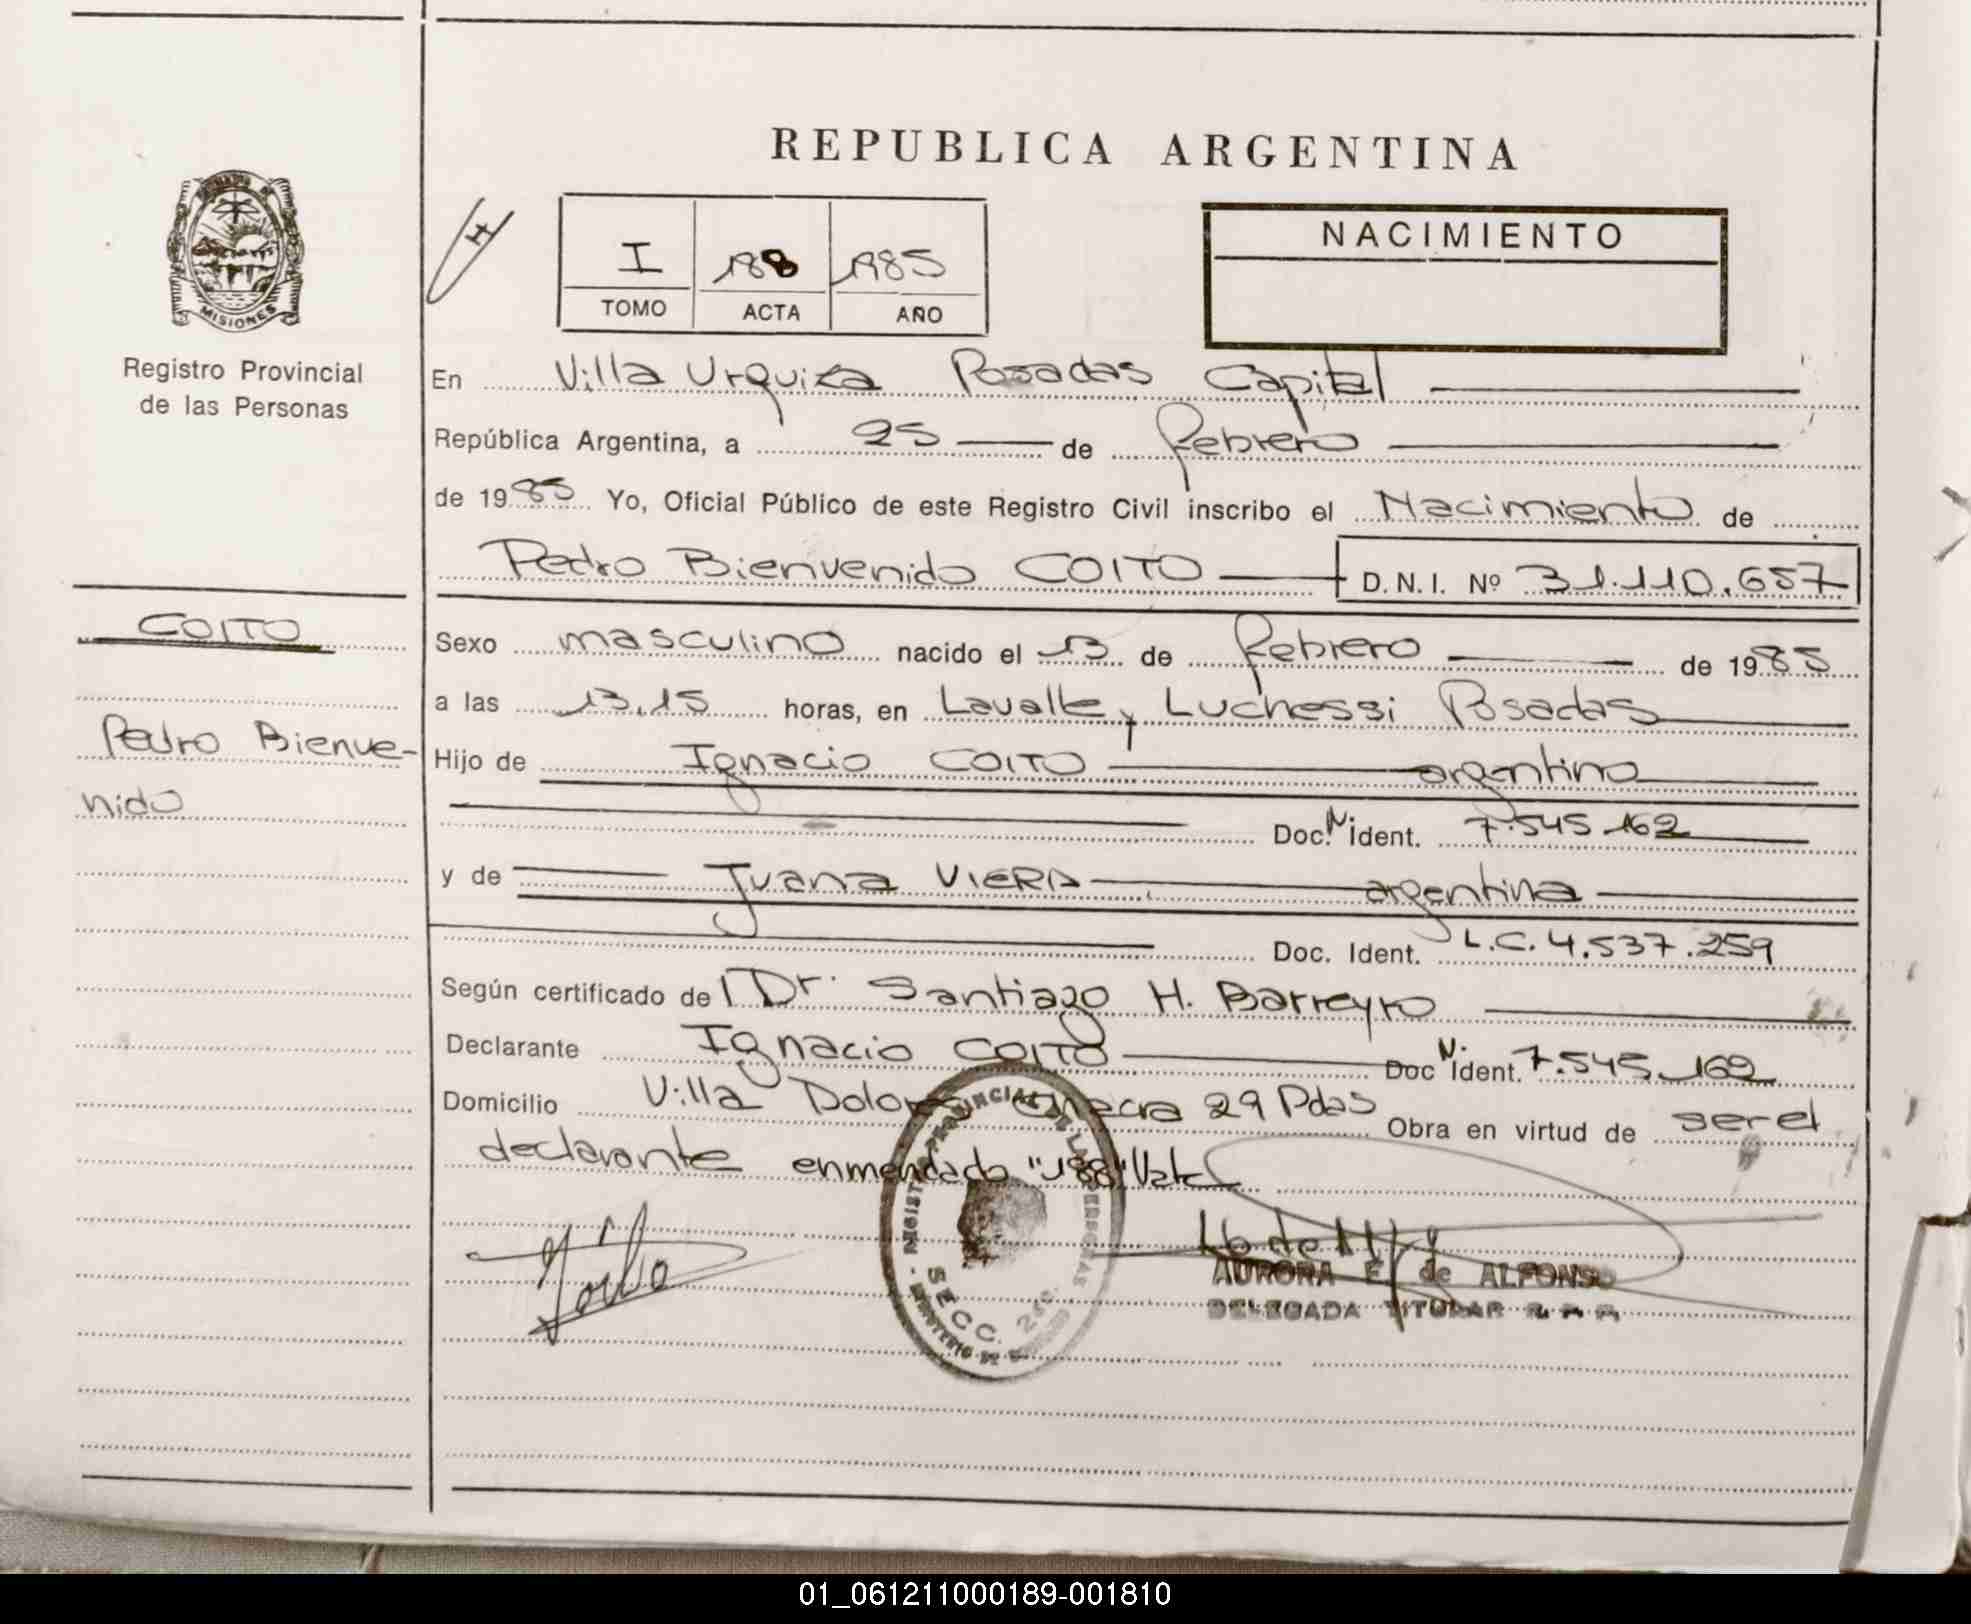 REPUBLICA ARGENTINA
MISIONES
Registro Provincial
de las Personas
H
I 188 1985
TOMO ACTA AÑO
NACIMIENTO
En Villa Urquiza Posadas Capital
República Argentina, a 25 de febrero
de 1985 Yo, Oficial Público de este Registro Civil inscribo el Nacimiento de
Pedro Bienvenido COITO D.N.I. Nº 31.110.657
COITO
Pedro Bienve-
nido
Sexo masculino nacido el 13 de febrero de 1985
a las 13,15 horas, en Lavalle y Luchessi Posadas
Hijo de Ignacio COITO argentino
Doc. N. Ident. 7.545.162
y de Juana VIERA argentina
Doc. Ident. L.C. 4.537.259
Según certificado de Dr. Santiago H. Barreyro
Declarante Ignacio COITO Doc N. Ident. 7.545.162
Domicilio Villa Dolores 29 Pdas Obra en virtud de ser el
declarante enmendado "188" Vale
SECC. 2da.
AURORA E. de ALFONSO
DELEGADA TITULAR
01_061211000189-001810